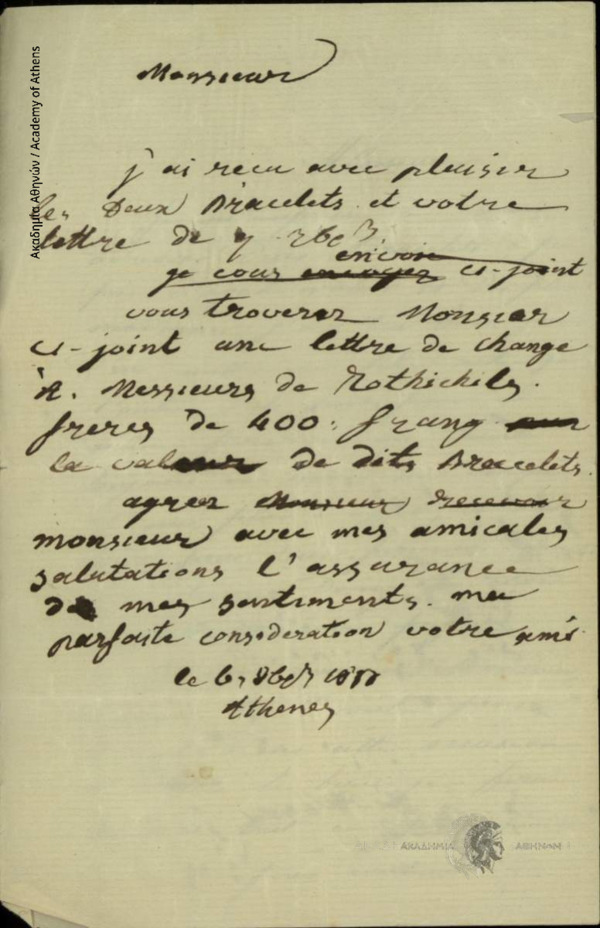 Ακαδημία Αθηνών / Academy of Athens
Monsieur
j'ai recu avec plaisir
les Deux Bracelets et votre
lettre de 7
envoie
je vous envoyez ci-joint
vous troverer Monsieur
ci-joint une lettre de change
A. Messieurs de Rothichils
freres de 400. frang
la valeur de dits Bracelets.
agrer Monsieur recevoir
monsieur avec mes amicales
salutations l'assurance
de mes sentiments. ma
parfaite consideration votre ami
le 6, 8br
Athenes
ΑΚΑΔΗΜΙΑ ΑΘΗΝΩΝ